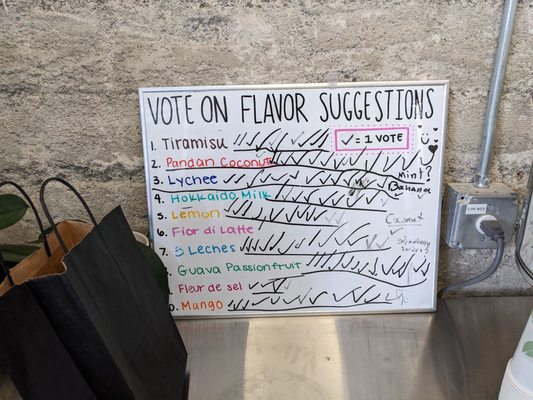 VOTE ON FLAVOR SUGGESTIONS
✓ = 1 VOTE
1. Tiramisu
2. Pandan Coconut
Mint?
3. Lychee
Banana
4. Hokkaido Milk
5. Lemon
Coconut
6. Fior di Latte
7. 3 Leches
Strawberry
Guava Passionfruit
Fleur de sel
0. Mango